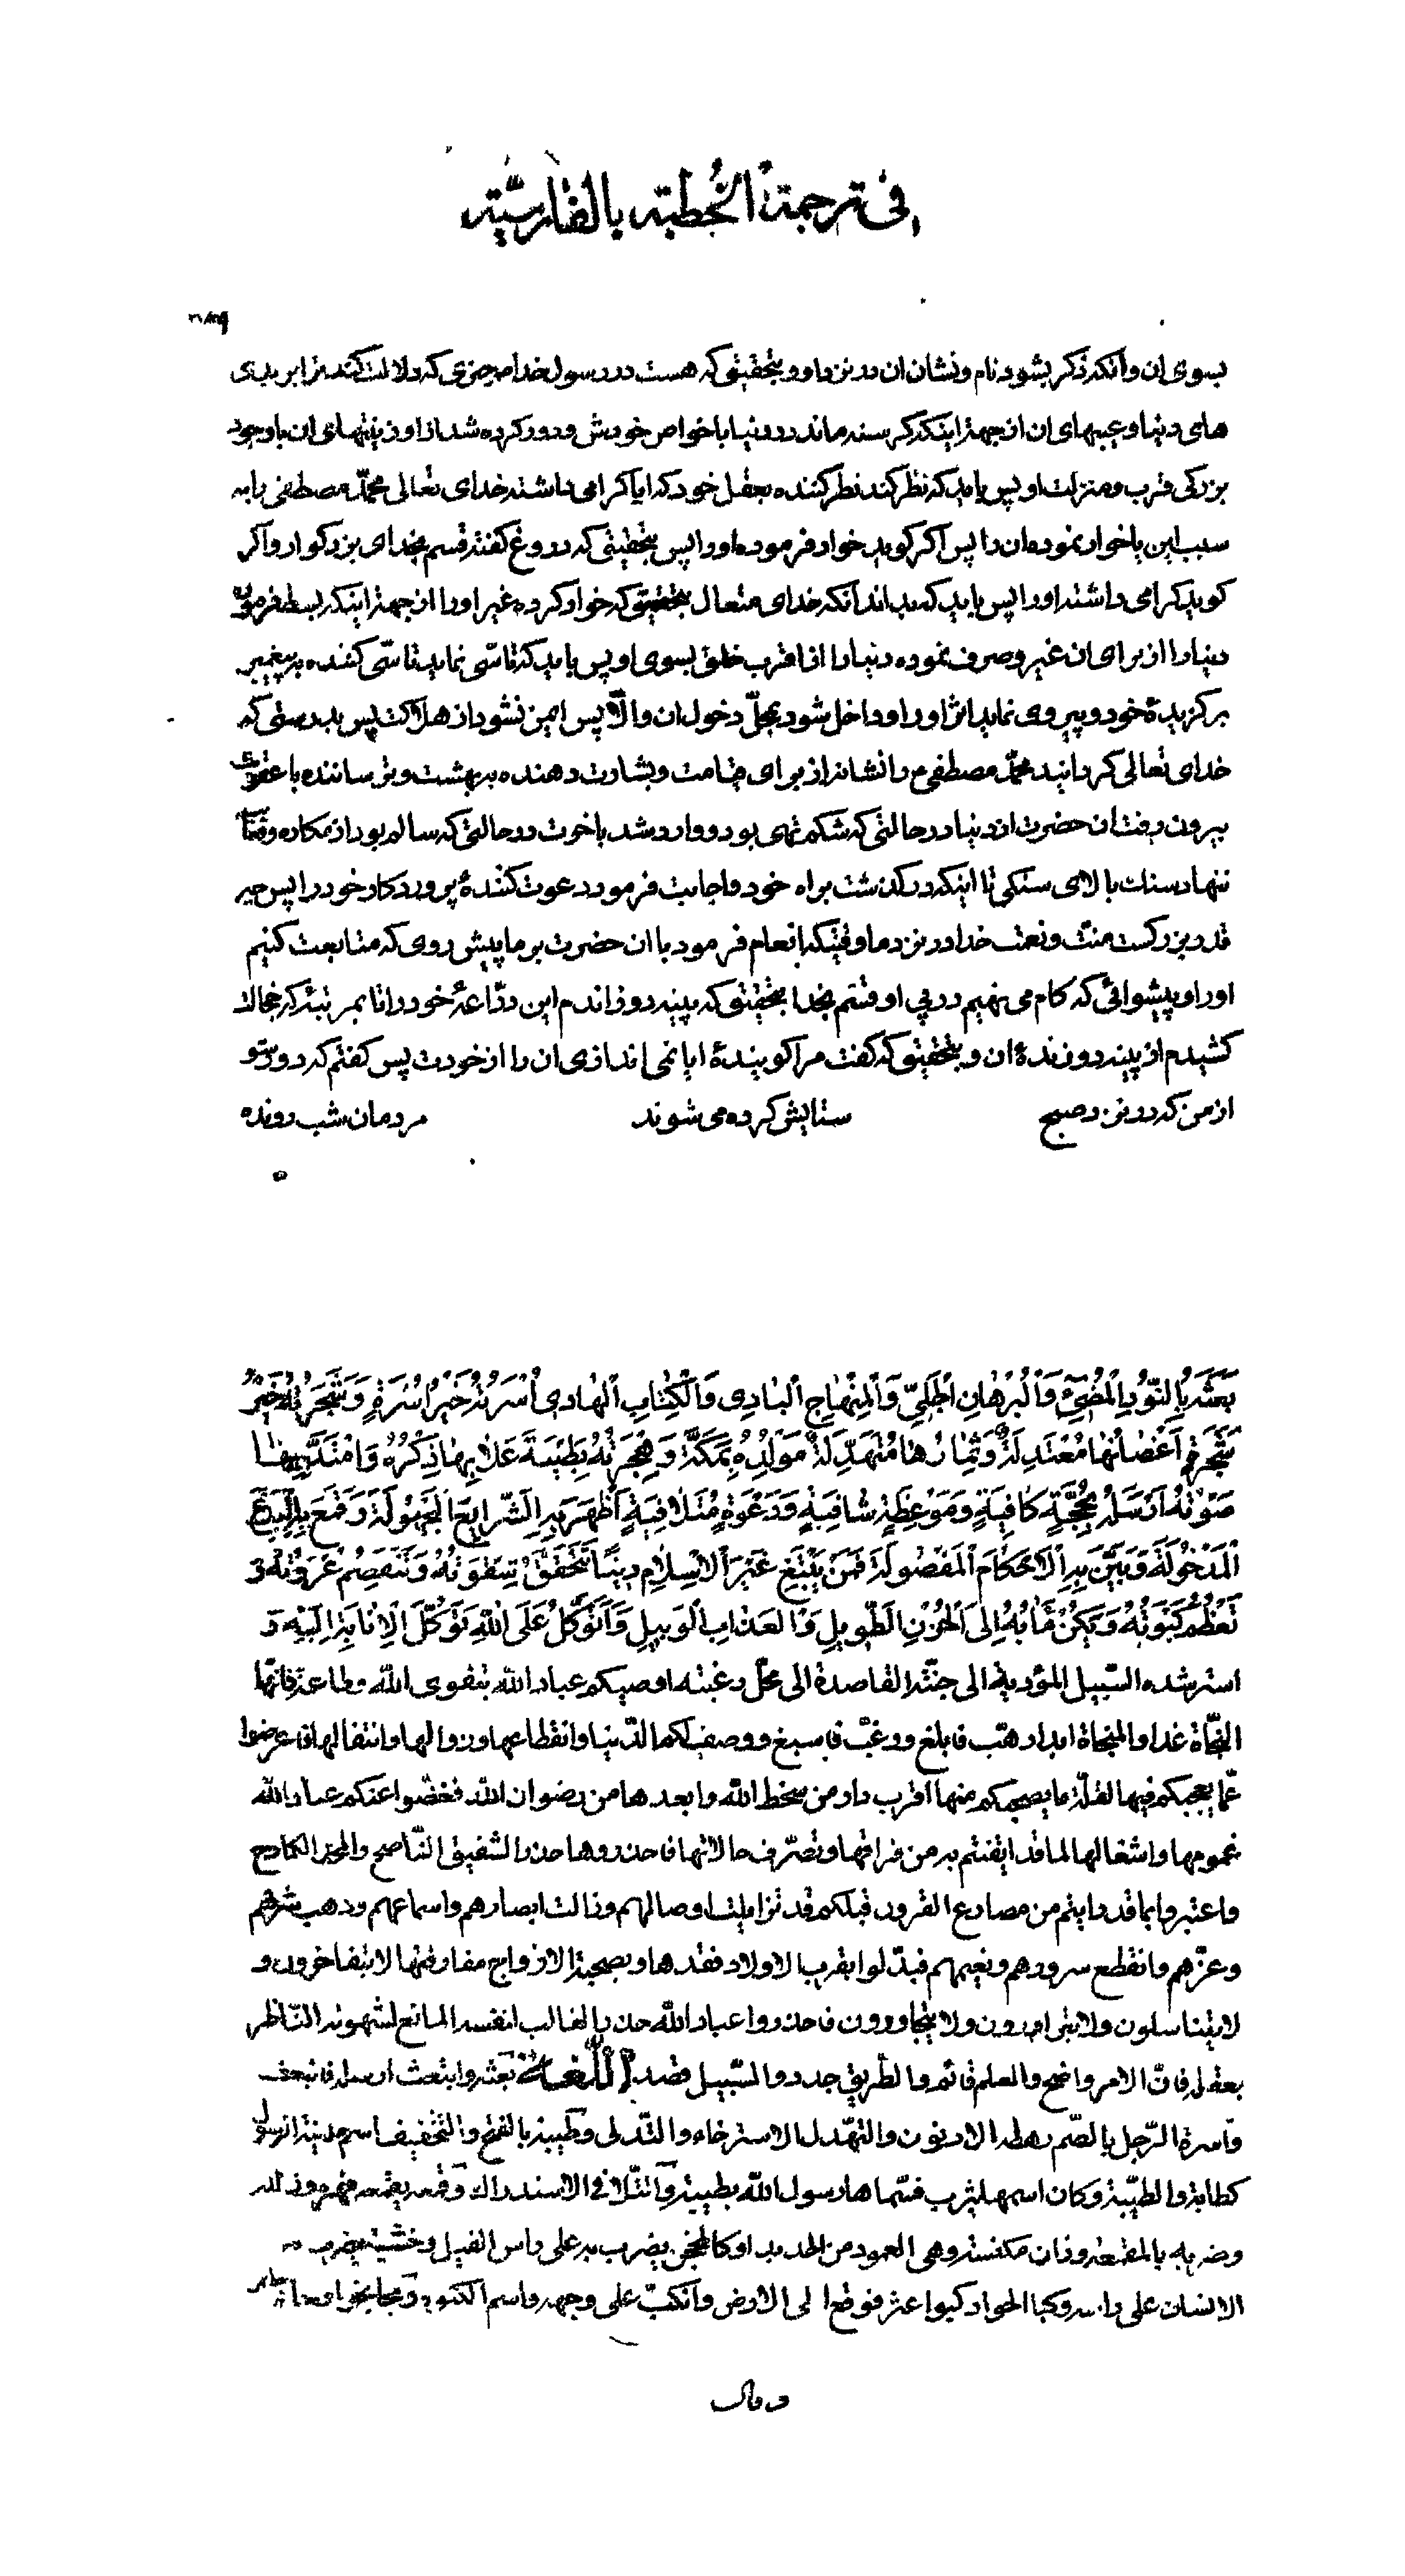 فی ترجمة الخطبته بالفارسیّته
بسوی ان و آنکه ذکر بشود نام و نشان ان در نزد او و بتحقیق که هست در رسول خدا ص چیزی که دلالت کند ترا بر بدی
های دنیا و عیبهای ان از جهة اینکه کرسنه ماند در دنیا با خواص خودش و دور کرده شد از او زینتهای ان با وجود
بزرکی قرب و منزلت او پس باید که نظر کند نظر کننده بعقل خود که ایا کرامی داشته خدای تعالی محمّد مصطفی را به
سبب این یا خوار نموده ان را پس اکر کوید خوار فرموده او را پس بتحقیق که دروغ کفته قسم بخدای بزرکوار و اکر
کوید کرامی داشته او را پس باید که بداند آنکه خدای متعال بتحقیق که خوار کرده غیر او را از جهة اینکه بسط فرموده
دنیا را از برای ان غیر و صرف نموده دنیا را از اقرب خلق بسوی او پس باید که تاسّی نماید تاسّی کننده به پیغمبر
برکزیدهٔ خود و پیروی نماید اثر او را و داخل شود بمحلّ دخول ان و الّا پس ایمن نشود از هلاکت پس بدرستی که
خدای تعالی کردانید محمّد مصطفی م را نشانه از برای قیامت و بشارت دهنده به بهشت و ترساننده با عقوبت
بیرون رفت ان حضرت از دنیا در حالتی که شکم تهی بود و وارد شد باخرت در حالتی که سالم بود از مکاره
ننهاد سنک بالای سنکی تا اینکه در کذشت براه خود و اجابت فرمود دعوت کنندهٔ پروردکار خود را پس چه
قدر بزرکست منّت و نعمت خدا در نزد ما وقتیکه انعام فرمود با ان حضرت بر ما پیش روی که متابعت کنیم
او را و پیشوائی که کام می نهیم در پی او قسم بخدا بتحقیق که پینه دوزاندم این درّاعهٔ خود را تا بمرتبهٔ که خجالت
کشیدم از پینه دوزندهٔ ان و بتحقیق که کفت مرا کویندهٔ ایا نمی اندازی ان را از خودت پس کفتم که دور شو
از من که در نزد صبح ستایش کرده می شوند مردمان شب رونده
بَعَثَهُ بِالنُّورِ الْمُضِیءِ وَالْبُرْهانِ الْجَلِیِّ وَالْمِنْهاجِ الْبادِی وَالْکِتابِ الْهادِی اُسْرَتُهُ خَیْرُ اُسْرَةٍ وَشَجَرَتُهُ خَیْرُ
شَجَرَةٍ اَغْصانُها مُعْتَدِلَةٌ وَثِمارُها مُتَهَدِّلَةٌ مَوْلِدُهُ بِمَکَّةَ وَهِجْرَتُهُ بِطَیْبَةَ عَلا بِها ذِکْرُهُ وَامْتَدَّ بِها
صَوْتُهُ اَرْسَلَهُ بِحُجَّةٍ کافِیَةٍ وَمَوْعِظَةٍ شافِیَةٍ وَدَعْوَةٍ مُتَلافِیَةٍ اَظْهَرَ بِهِ الشَّرایِعَ الْمَجْهُولَةَ وَقَمَعَ بِهِ الْبِدَعَ
الْمَدْخُولَةَ وَبَیَّنَ بِهِ الْاَحْکامَ الْمَفْصُولَةَ فَمَنْ یَبْتَغِ غَیْرَ الْاِسْلامِ دِینًا تَتَحَقَّقْ شِقْوَتُهُ وَتَنْفَصِمْ عُرْوَتُهُ وَ
تَعْظُمْ کَبْوَتُهُ وَیَکُنْ مَابُهُ اِلَی الْحُزْنِ الطَّوِیلِ وَالْعَذابِ الْوَبِیلِ وَاَتَوَکَّلُ عَلَی اللّهِ تَوَکُّلَ الْاِنابَةِ اِلَیْهِ وَ
استرشده السّبیل المؤدیة الی جنّته القاصدة الی محلّ رغبته اوصیکم عباد الله بتقوی الله وطاعته فانّها
النّجاة غدا والمنجاة ابدا رهّب فابلغ ورغّب فاسبغ ووصف لکم الدّنیا وانقطاعها وزوالها وانتقالها فاعرضوا
عمّا یعجبکم فیها لقلّة ما یصحبکم منها اقرب دار من سخط الله وابعدها من رضوان الله فغضّوا عنکم عباد الله
غمومها واشغالها لما قد ایقنتم به من فراقها وتصرّف حالاتها فاحذروها حذر الشفیق النّاصح والمجدّ الکادح
واعتبروا بما قد رایتم من مصارع القرون قبلکم قد تزایلت اوصالهم وزالت ابصارهم واسماعهم وذهب شرفهم
وعزّهم وانقطع سرورهم ونعیمهم فبدّلوا بقرب الاولاد فقدها وبصحبة الازواج مفارقتها لا یتفاخرون و
لا یتناسلون ولا یتزاورون ولا یتجاورون فاحذروا عباد الله حذر الغالب لنفسه المانع لشهوته النّاظر
بعقله فانّ الامر واضح والعلم قائم والطّریق جدد والسّبیل قصد اللّغة بعثه وابتعث ارسله فانبعث
واسرة الرّجل بالضّم رهطه الادنون والتهدّل الاسترخاء والتّدلی وطیبة بالفتح والتّخفیف اسم مدینة الرسول
کطابة والطیّبة وکان اسمها یثرب فسمّاها رسول الله بطیبة وتلافی الاستدراک وقمعه یقمعه قهره وذلله
وضربه بالمقمعة وزان مکنسة وهی العمود من الحدید او کالمحجن یضرب به علی راس الفیل وخشبة یضرب
الانسان علی راسه وکبا الجواد کبوا عثر فوقع الی الارض وانکبّ علی وجهه واسم الکبوة